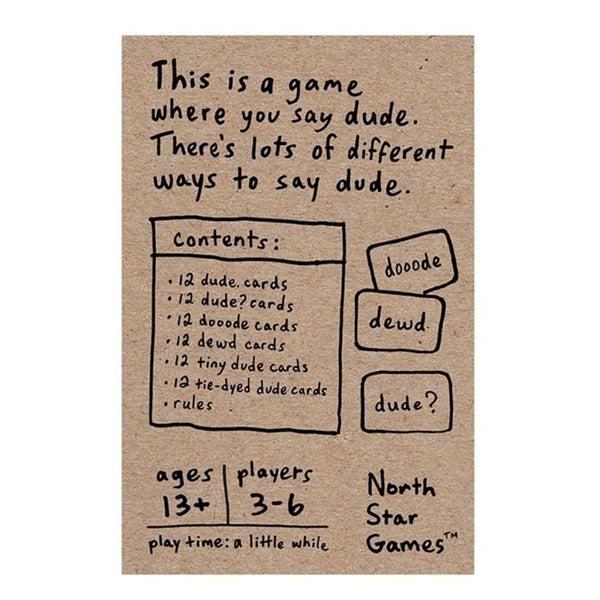 This is a game
where you say dude.
There's lots of different
ways to say dude.
Contents:
• 12 dude. cards
• 12 dude? cards
• 12 dooode cards
• 12 dewd cards
• 12 tiny dude cards
• 12 tie-dyed dude cards
• rules
dooode
dewd.
dude?
ages players
13+ 3-6
play time: a little while
North
Star
Games™